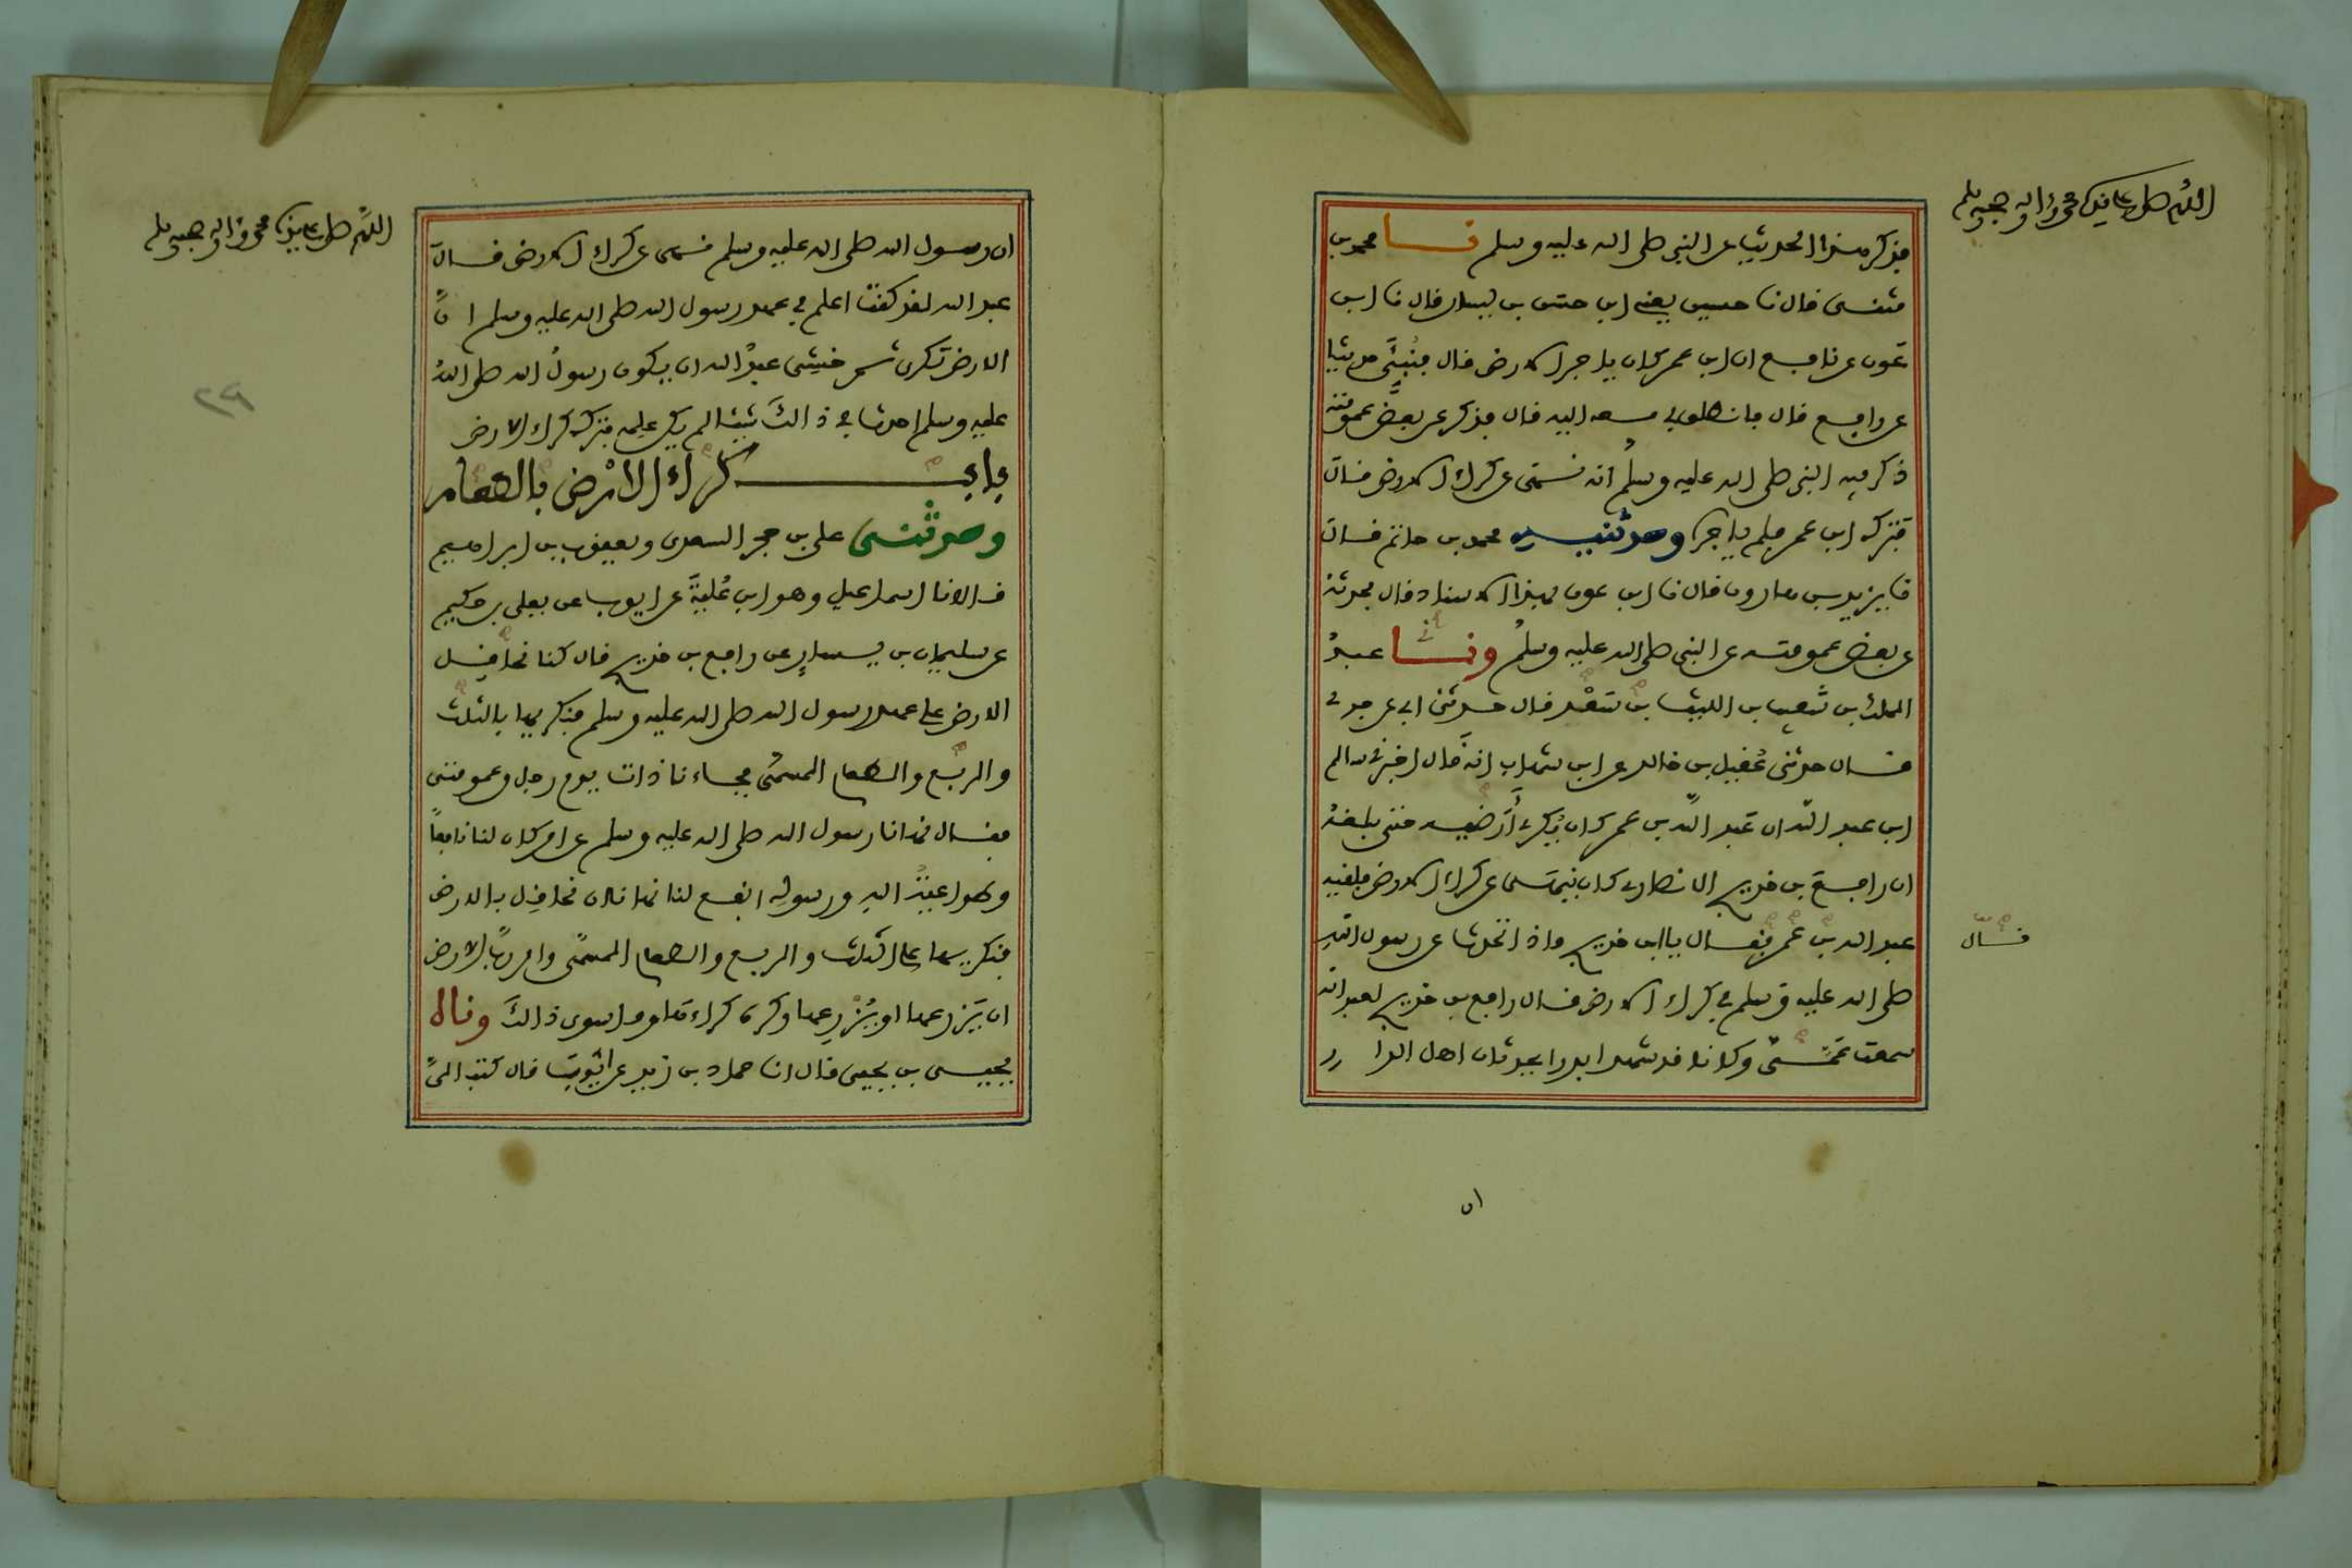 اللهم صل على سيدنا محمد وآله وصحبه وسلم
فذكر هذا الحديث عن النبي صلى الله عليه وسلم نا محمد بن
مثنى قال نا حسين يعني ابن حسن بن يسار قال نا ابن
عون عن نافع ان ابن عمر كان ياجر الارض قال فنبئ حديثا
عن رافع قال فانطلق بي معه اليه قال فذكر عن بعض عمومته
ذكر فيه النبي صلى الله عليه وسلم انه نهى عن كراء الارض قال
فتركه ابن عمر فلم ياجره وحدثنيه محمد بن حاتم قال
نا يزيد بن هارون قال نا ابن عون بهذا الاسناد قال فحدثه
عن بعض عمومته عن النبي صلى الله عليه وسلم ونا عبد
الملك بن شعيب بن الليث بن سعد قال حدثني ابي عن جدي
قال حدثني عقيل بن خالد عن ابن شهاب انه قال اخبرني سالم
ابن عبد الله ان عبد الله بن عمر كان يكري أرضيه حتى بلغه
ان رافع بن خديج الانصاري كان ينهى عن كراء الارض فلقيه
عبد الله بن عمر فقال يا ابن خديج ماذا تحدث عن رسول الله
قال
صلى الله عليه وسلم في كراء الارض قال رافع بن خديج لعبد الله
سمعت عمي وكانا قد شهدا بدرا يحدثان اهل الدار
ان
اللهم صل على سيدنا محمد وآله وصحبه وسلم
٢٩
ان رسول الله صلى الله عليه وسلم نهى عن كراء الارض قال
عبد الله لقد كنت اعلم في عهد رسول الله صلى الله عليه وسلم ان
الارض تكرى ثم خشي عبد الله ان يكون رسول الله صلى الله
عليه وسلم احدث في ذالك شيئا لم يكن علمه فترك كراء الارض
باب كراء الارض بالطعام
وحدثني علي بن حجر السعدي ويعقوب بن ابراهيم
قالا نا اسماعيل وهو ابن علية عن ايوب عن يعلى بن حكيم
عن سليمان بن يسار عن رافع بن خديج قال كنا نحاقل
الارض على عهد رسول الله صلى الله عليه وسلم فنكريها بالثلث
والربع والطعام المسمى فجاءنا ذات يوم رجل من عمومتي
فقال نهانا رسول الله صلى الله عليه وسلم عن امر كان لنا نافعا
وطواعية الله ورسوله انفع لنا نهانا ان نحاقل بالارض
فنكريها على الثلث والربع والطعام المسمى وامر رب الارض
ان يزرعها او يزرعها وكره كراءها وما سوى ذالك وناه
يحيى بن يحيى قال انا حماد بن زيد عن ايوب قال كتب الي